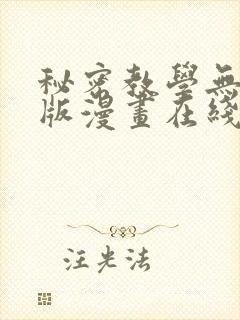 秘密教學無
版漫畫在綫
汪光法